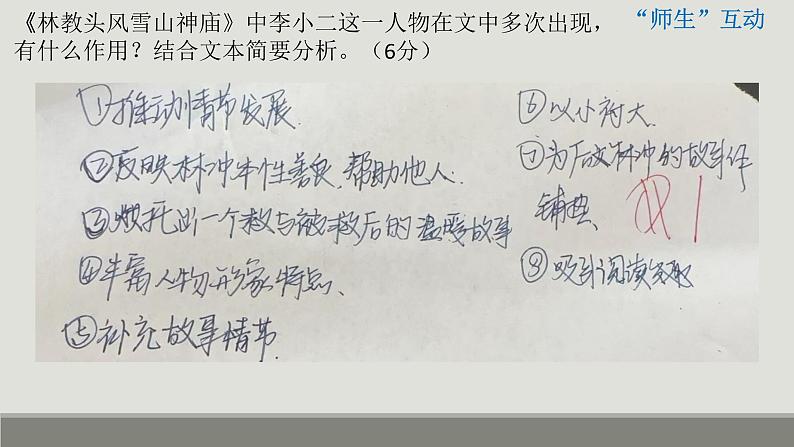 《林教头风雪山神庙》中李小二这一人物在文中多次出现，
有什么作用？结合文本简要分析。（6分）
“师生”互动
①推动情节发展.
②反映林冲本性善良，帮助他人.
③烘托出一个救与被救后的温暖故事
④丰富人物形象特点、
⑤补充故事情节.
⑥以小衬大.
⑦为后文林冲的故事作
铺垫、
⑧吸引阅读兴趣